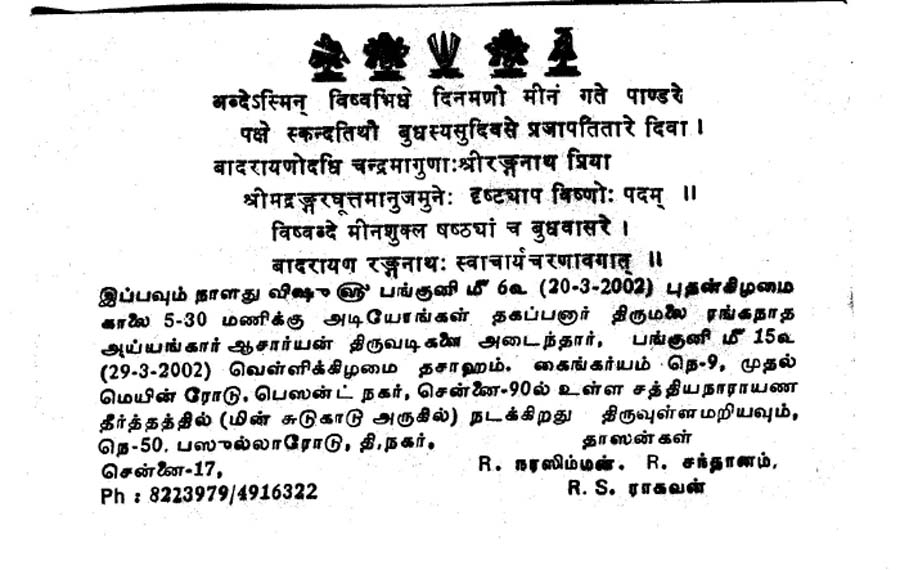 अब्देऽस्मिन् विष्वभिधे दिनमणौ मीनं गते पाण्डरे
पक्षे स्कन्दतिथौ बुधस्यसुदिवसे प्रजापतितारे दिवा ।
बादरायणोदधि चन्द्रमागुणाःश्रीरङ्गनाथ प्रिया
श्रीमद्रङ्गरघूत्तमानुजमुनेः दृष्ट्याप विष्णोः पदम् ॥
विष्वब्दे मीनशुक्ल षष्ठ्यां च बुधवासरे ।
बादरायण रङ्गनाथः स्वाचार्यचरणावगात् ॥
இப்பவும் நாளது விஷு ௵ பங்குனி மீ 6௳ (20-3-2002) புதன்கிழமை
காலை 5-30 மணிக்கு அடியோங்கள் தகப்பனார் திருமலை ரங்கநாத
அய்யங்கார் ஆசார்யன் திருவடிகளை அடைந்தார், பங்குனி மீ 15௳
(29-3-2002) வெள்ளிக்கிழமை தசாஹம். கைங்கர்யம் நெ-9, முதல்
மெயின் ரோடு, பெஸன்ட் நகர், சென்னை-90ல் உள்ள சத்தியநாராயண
தீர்த்தத்தில் (மின் சுடுகாடு அருகில்) நடக்கிறது திருவுள்ளமறியவும்,
நெ-50. பஸுல்லாரோடு, தி,நகர், தாஸன்கள்
சென்னை-17, R. நரஸிம்மன். R. சந்தானம்,
Ph : 8223979/4916322 R. S. ராகவன்